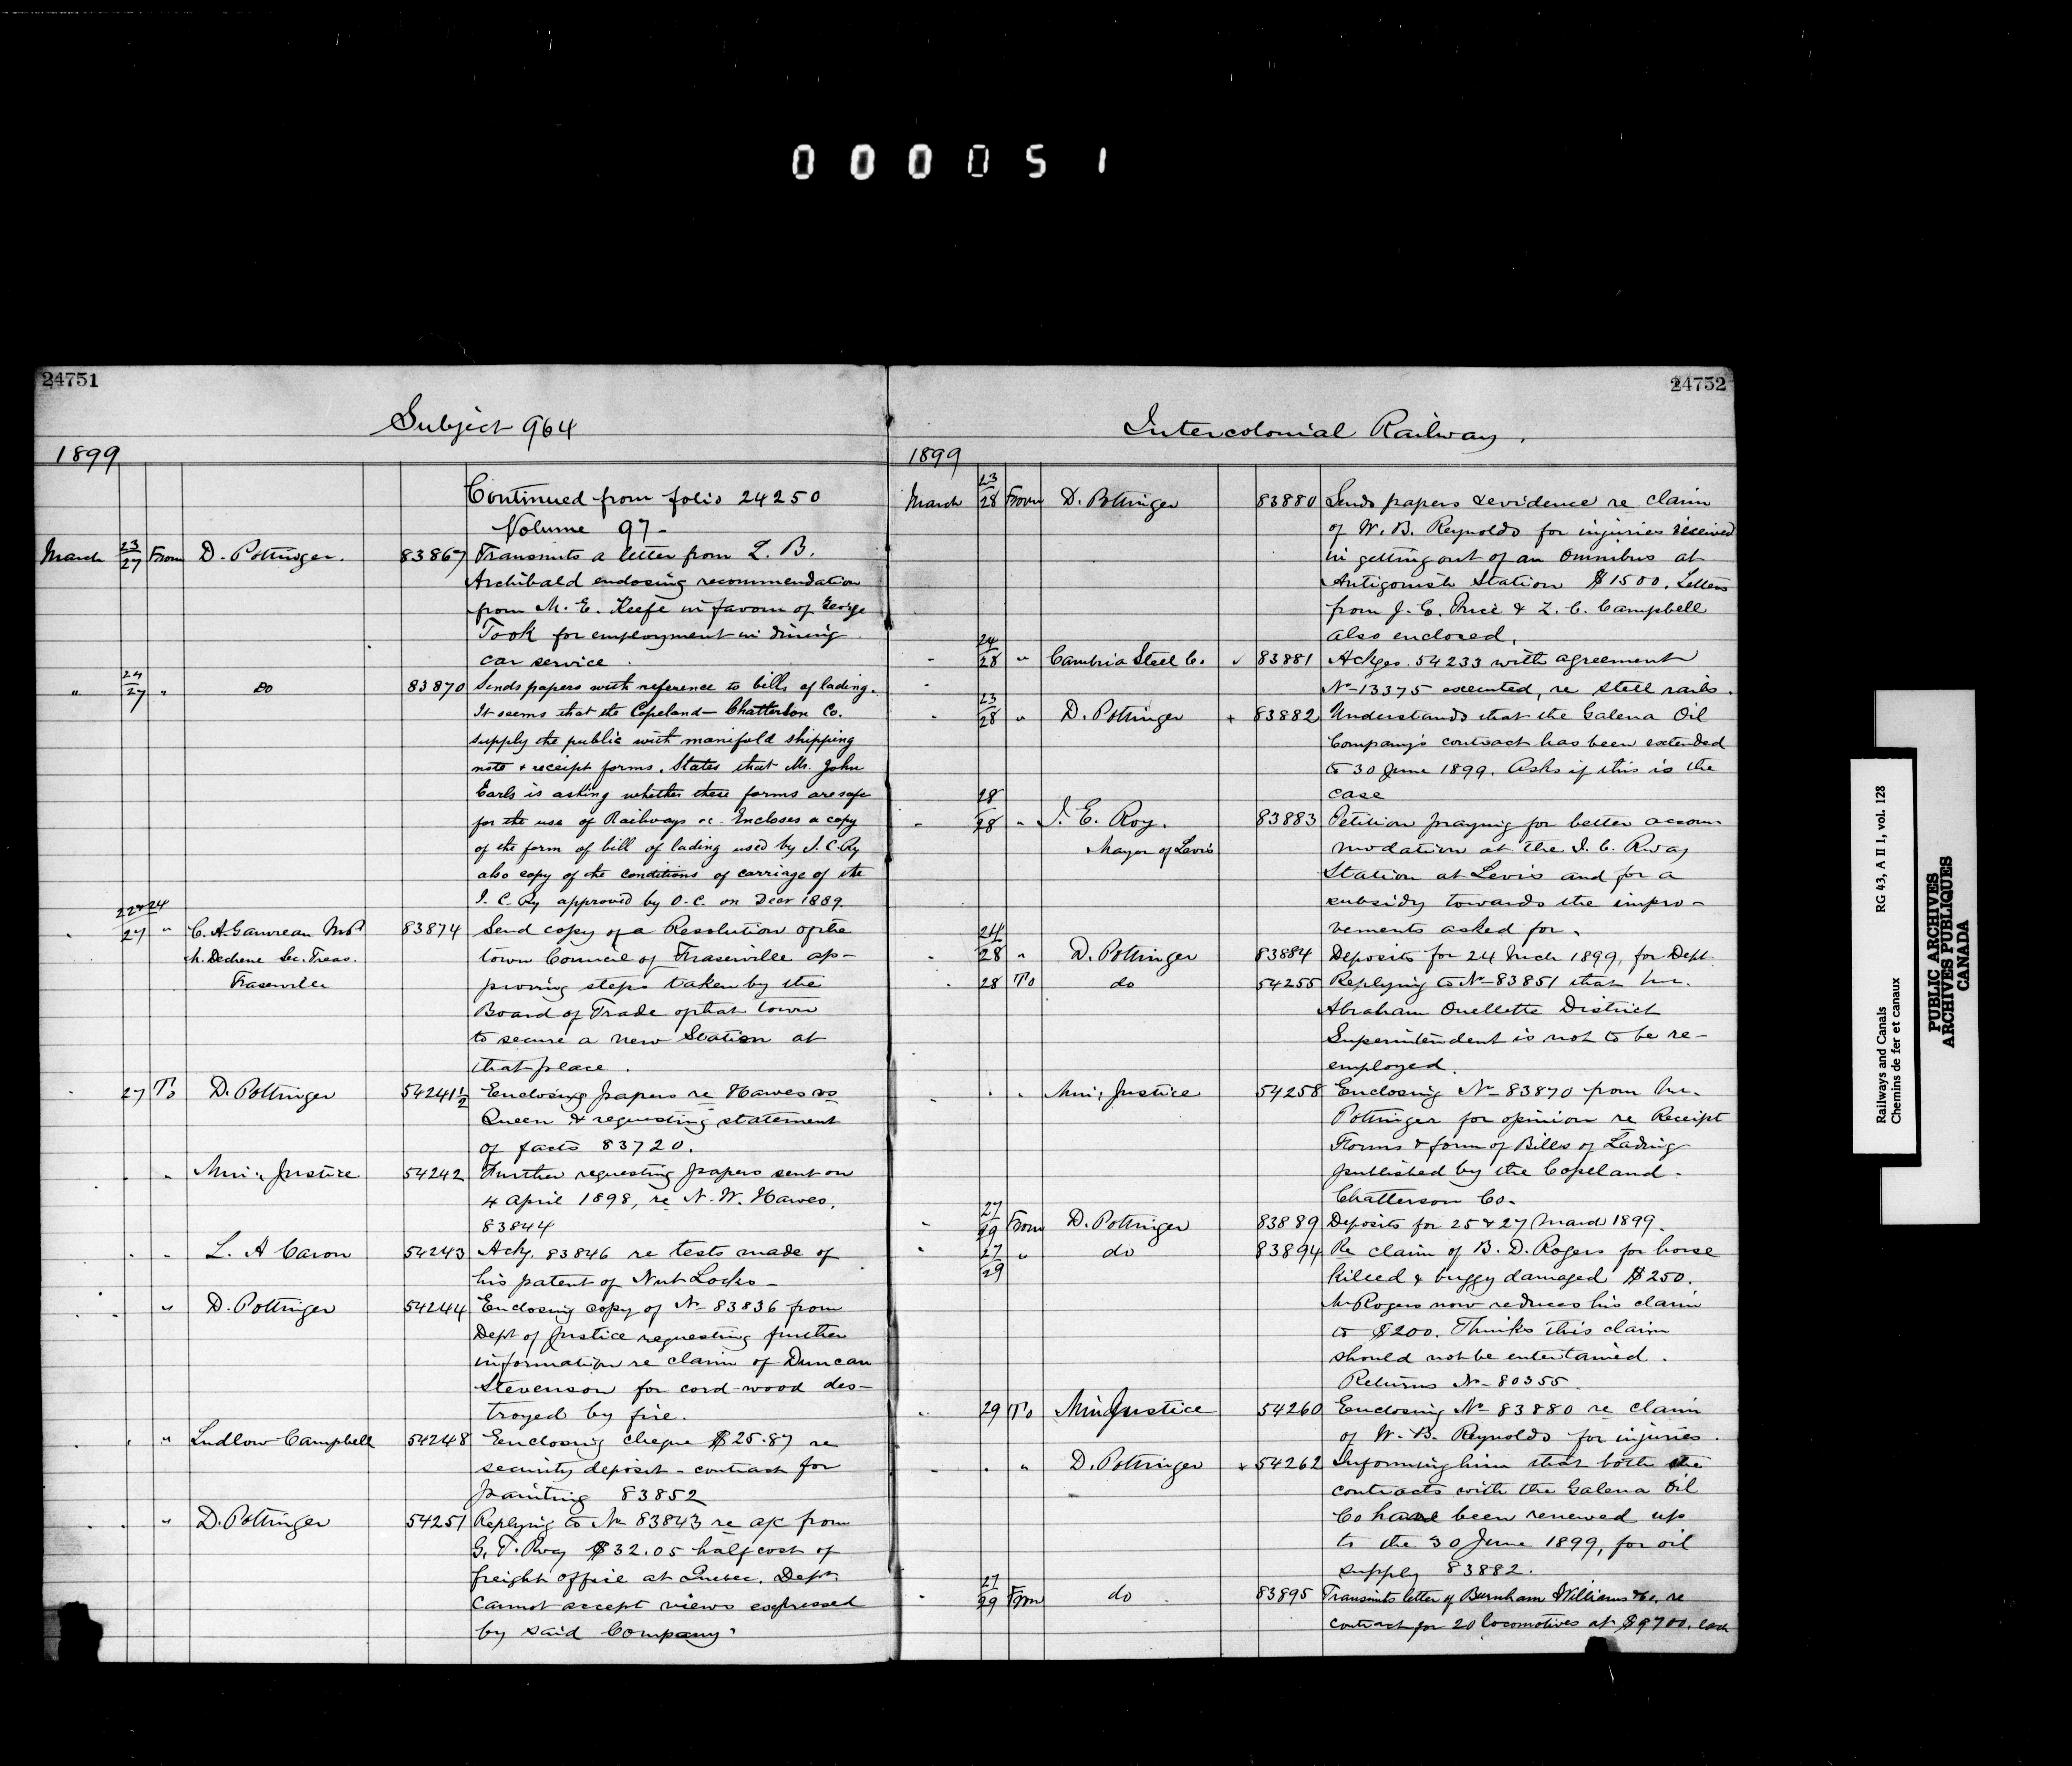 000051
24751
Subject 964
1899
Continued from folio 24250
Volume 97-
March 23/27 From D. Pottinger. 83867 Transmits a letter from L. B.
Archibald enclosing recommendation
from M. E. Keefe in favour of George
Took for employment in dining
car service.
" 24/27 " do 83870 Sends papers with reference to bills of lading.
It seems that the Copeland-Chatterson Co.
supply the public with manifold shipping
note & receipt forms. States that Mr. John
Earls is asking whether these forms are safe
for the use of Railways &c. Encloses a copy
of the form of bill of lading used by I. C. Ry
also copy of the conditions of carriage of the
I. C. Ry approved by O. C. on Decr 1889.
22&24/27 " C. A. Gauvreau M.P. 83874 Send copy of a Resolution of the
Dechene Sec. Treas. town Council of Fraserville ap-
Fraserville proving steps taken by the
Board of Trade of that town
to secure a new Station at
that place.
27 To D. Pottinger 54241½ Enclosing papers re Hawes vs
Queen & requesting statement
of facts 83720.
" Min. Justice 54242 Further requesting papers sent on
4 April 1898, re N. W. Hawes.
83844
" L. A Caron 54243 Ackg. 83846 re tests made of
his patent of Nut Locks-
" D. Pottinger 54244 Enclosing copy of No 83836 from
Dept of Justice requesting further
information re claim of Duncan
Stevenson for cord-wood des-
troyed by fire.
" Ludlow Campbell 54248 Enclosing cheque $25.87 re
security deposit - contract for
painting 83852
" D. Pottinger 54251 Replying to No 83843 re a/c from
G. T. Rway $32.05 half cost of
freight office at Quebec. Dept.
Cannot accept views expressed
by said Company.
24752
Intercolonial Railway.
1899
March 23/28 From D. Pottinger 83880 Sends papers & evidence re claim
of W. B. Reynolds for injuries received
in getting out of an Omnibus at
Antigonish Station $1500. Letters
from J. E. Price & Z. C. Campbell
also enclosed.
24/28 " Cambria Steel Co. ✓ 83881 Ackges. 54233 with agreement
No-13375 executed, re steel rails.
23/28 " D. Pottinger + 83882 Understands that the Galena Oil
Company's contract has been extended
to 30 June 1899. Asks if this is the
case
28/28 " J. E. Roy. 83883 Petition praying for better accom-
Mayor of Levis modation at the I. C. Rway
Station at Levis and for a
subsidy towards the impro-
vements asked for.
24/28 " D. Pottinger 83884 Deposits for 24 Mch 1899, for Dept
28 To do 54255 Replying to No-83851 that Mr.
Abraham Ouellette District
Superintendent is not to be re-
employed.
" Min. Justice 54258 Enclosing No-83870 from Mr.
Pottinger for opinion re Receipt
Forms & form of Bills of Lading
published by the Copeland-
Chatterson Co.
27/29 From D. Pottinger 83889 Deposits for 25 & 27 March 1899.
27/29 " do 83894 Re claim of B. D. Rogers for horse
killed & buggy damaged $250.
Mr Rogers now reduces his claim
to $200. Thinks this claim
should not be entertained.
Returns No-80355.
29 To Min Justice 54260 Enclosing No 83880 re claim
of W. B. Reynolds for injuries.
" D. Pottinger 54262 Informing him that both the
contracts with the Galena Oil
Co have been renewed up
to the 30 June 1899, for oil
supply 83882.
27/29 From do 83895 Transmits letter of Burnham Williams & Co. re
contract for 20 locomotives at $9700. each
Railways and Canals RG 43, A II 1, vol. 128
Chemins de fer et canaux
PUBLIC ARCHIVES
ARCHIVES PUBLIQUES
CANADA